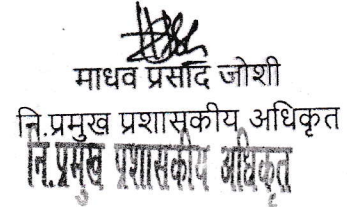 माधव प्रसाद जोशी
नि.प्रमुख प्रशासकीय अधिकृत
नि.प्रमुख प्रशासकीय अधिकृत